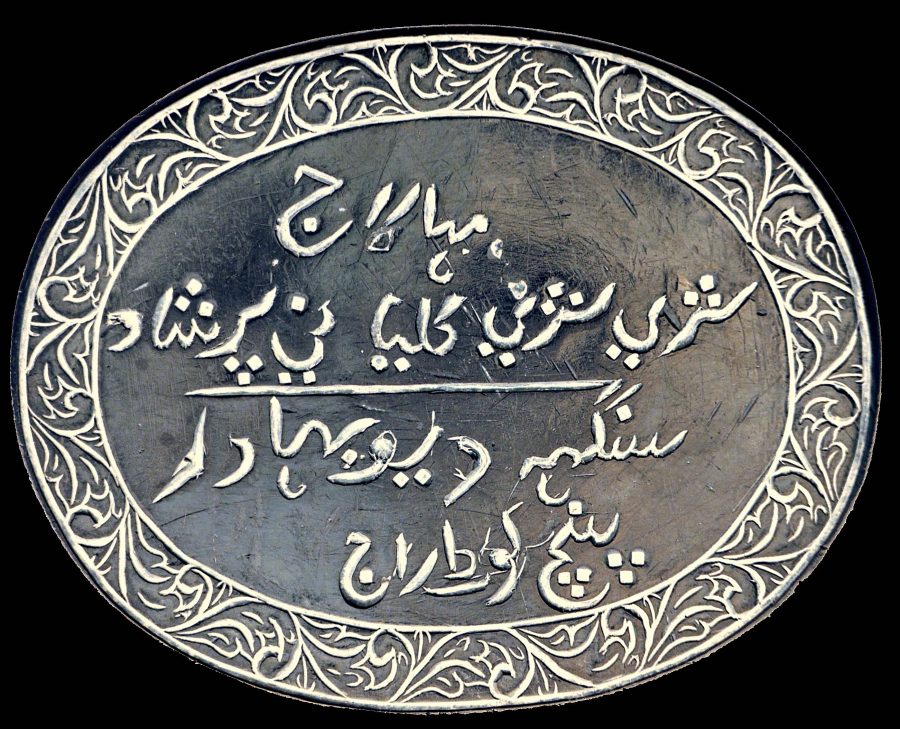 مہاراج
شری شری کلیا نی پرشاد
سنگہہ دیو بہادر
پنچ کوٹ راج